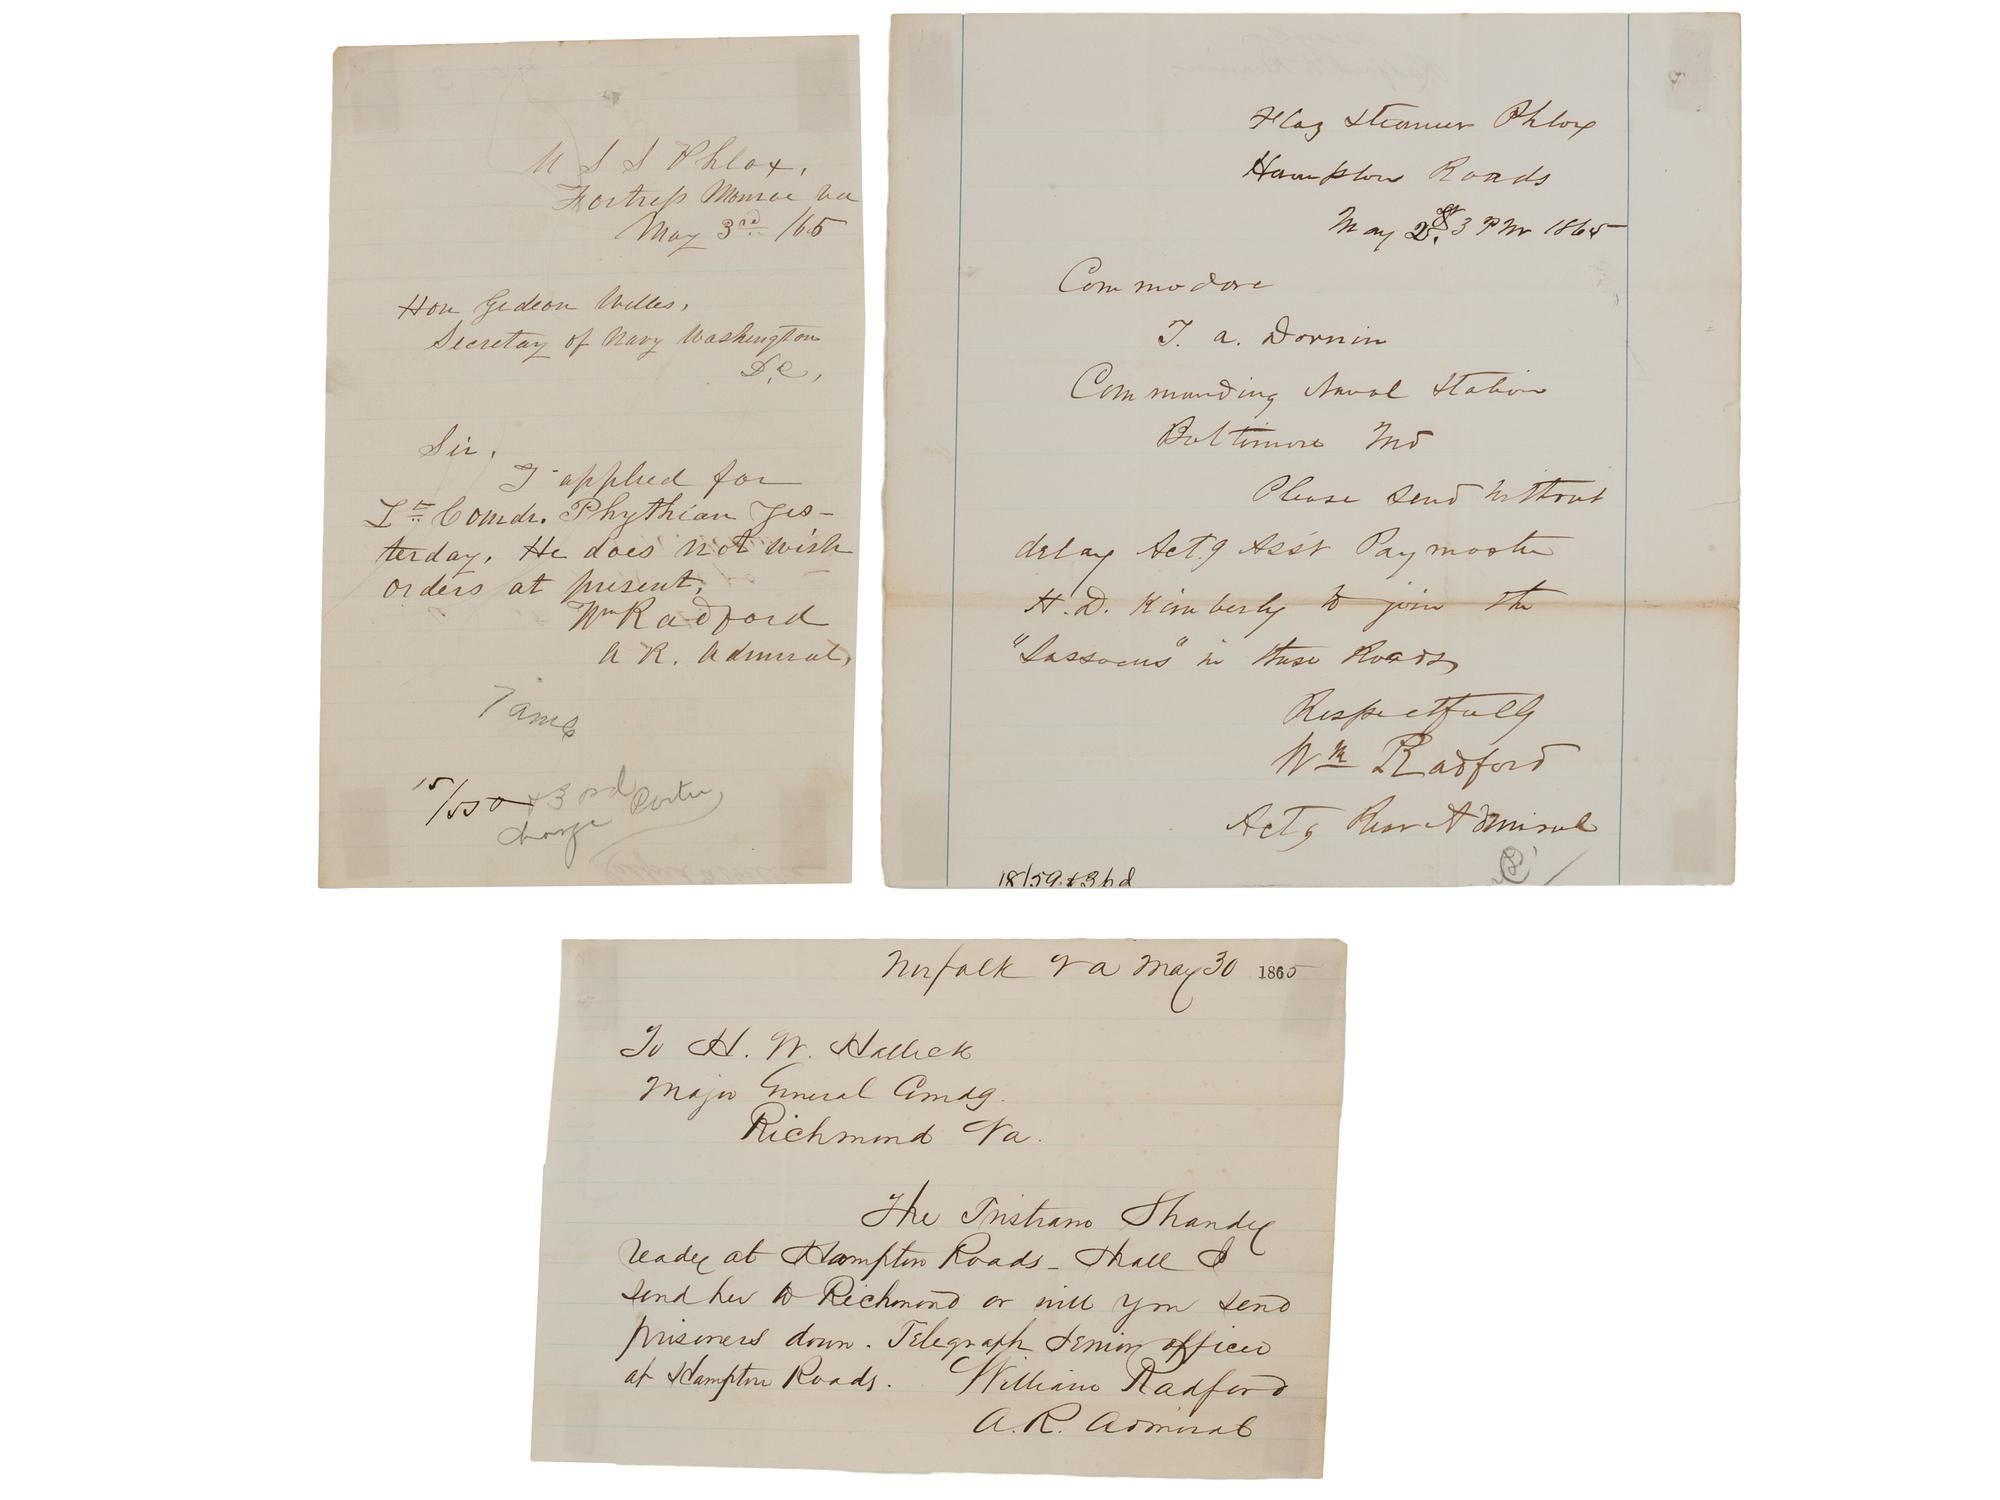 U S S Phlox,
Fortress Monroe Va
May 3rd /65
Hon Gideon Welles,
Secretary of Navy Washington
D.C,
Sir,
I applied for
Lt Comdr. Phythian Yes-
terday, He does not wish
orders at present,
Wm Radford
A R. Admiral,
7 ame
15/550 &3 pd
charge Porter
Flag Steamer Phlox
Hampton Roads
May 2d 3 PM 1865
Commodore
T. A. Dornin
Commanding Naval Station
Baltimore Md
Please send without
delay Act.g Asst Paymaster
H. D. Kimberly to join the
"Sassacus" in these Roads
Respectfully
Wm Radford
Act g Rear Admiral
18/59 &3 pd
Norfolk Va May 30 1865
To H. W. Halleck
Major General Comdg.
Richmond Va.
The Tristram Shandy
ready at Hampton Roads - Shall I
send her to Richmond or will you send
prisoners down. Telegraph Senior officer
at Hampton Roads. William Radford
A. R. Admiral